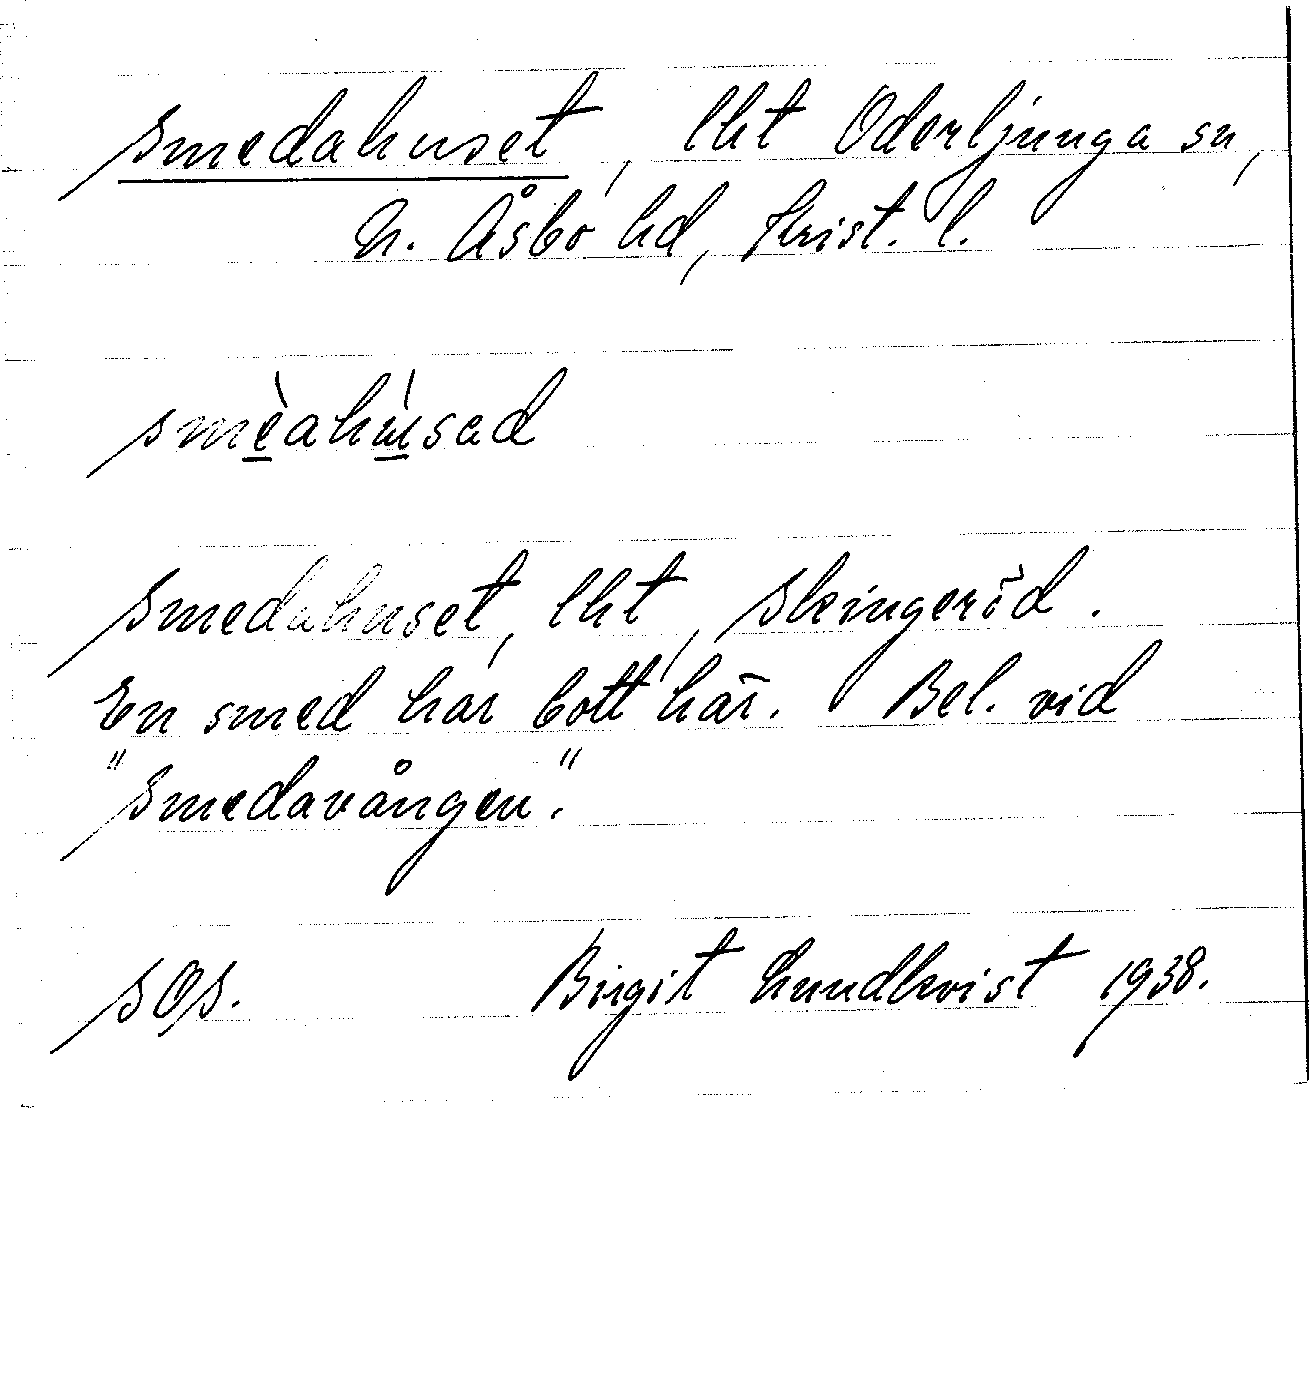 Smedahuset, lht Oderljunga sn,
N. Åsbo hd, Krist. l.
smèahúsad
Smedahuset, lht, Skingeröd.
En smed har bott här. Bel. vid
"Smedavången".
SOS. Birgit Lundkvist 1938.